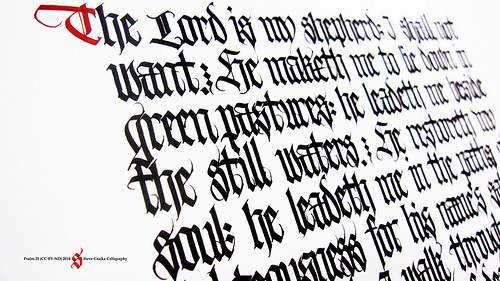 The Lord is my shepherd: I shall not
want: He maketh me to lie down in
green pastures: he leadeth me beside
the still waters: He restoreth my
soul: he leadeth me in the paths
righteousness for his name's
walk through
Psalm 23 (CC-BY-ND) 2014 S Steve Czajka Calligraphy